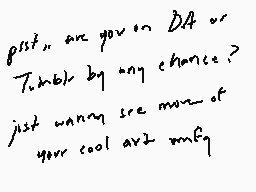 psst,, are you on DA or
Tumblr by any chance?
just wanna see more of
your cool art